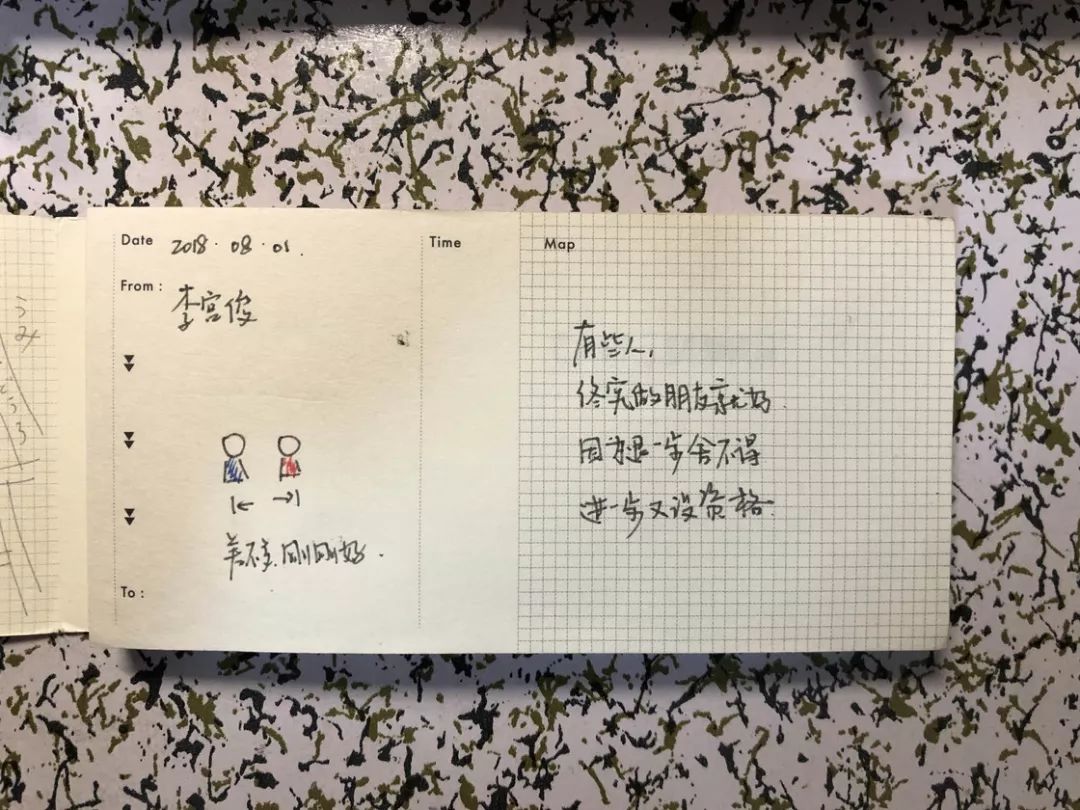 Date 2018.08.01.
Time
Map
From: 李宫俊
差不多,刚刚好.
To:
有些人,
终究做朋友就好.
因为退一步舍不得
进一步又没资格.